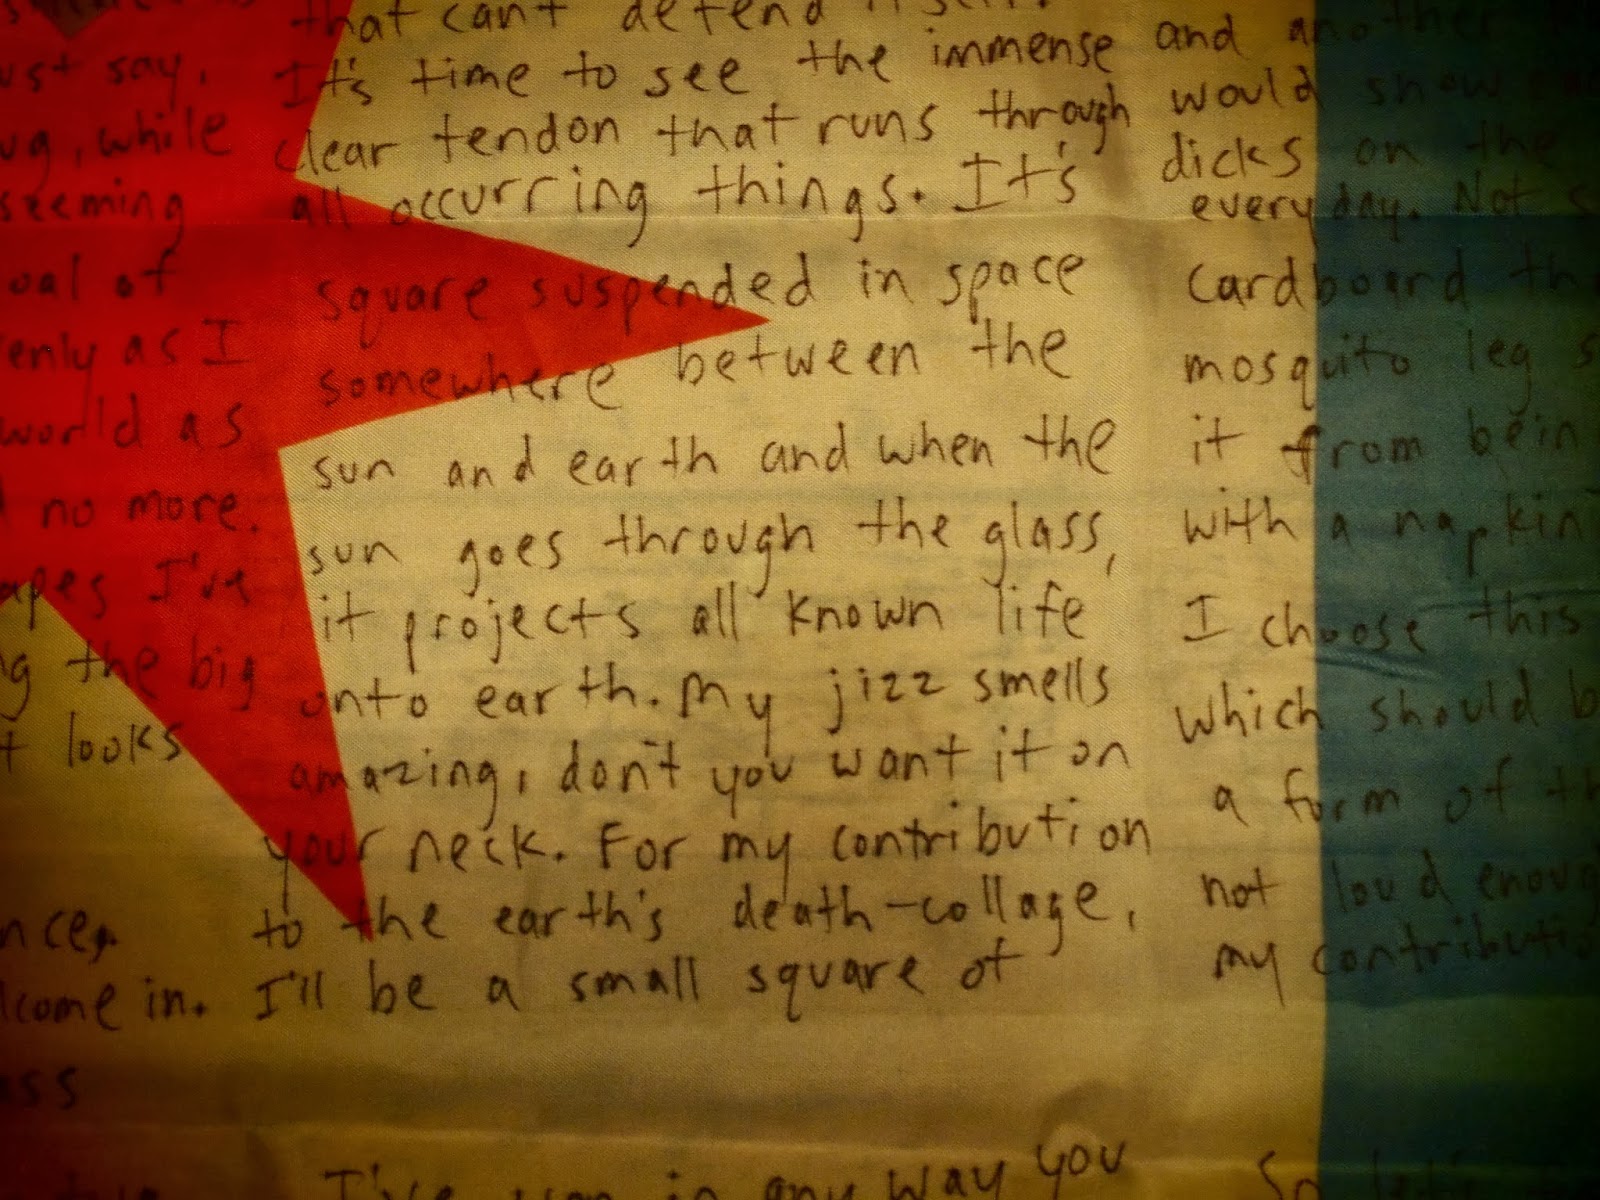 ust say.
ug, while
seeming
oal of
enly as I
world as
no more.
apes I've
ng the big
t looks
nce.
lcome in.
ass
that can't defend itself.
It's time to see the immense
clear tendon that runs through
all occurring things. It's
square suspended in space
somewhere between the
sun and earth and when the
sun goes through the glass,
it projects all known life
onto earth. My jizz smells
amazing, don't you want it on
your neck. For my contribution
to the earth's death-collage,
I'll be a small square of
I've in any way you
and another
would show
dicks on the
everyday. Not
cardboard th
mosquito leg s
it from bein
with a napkin
I choose this
which should b
a form of th
not loud enoug
my contributi
So